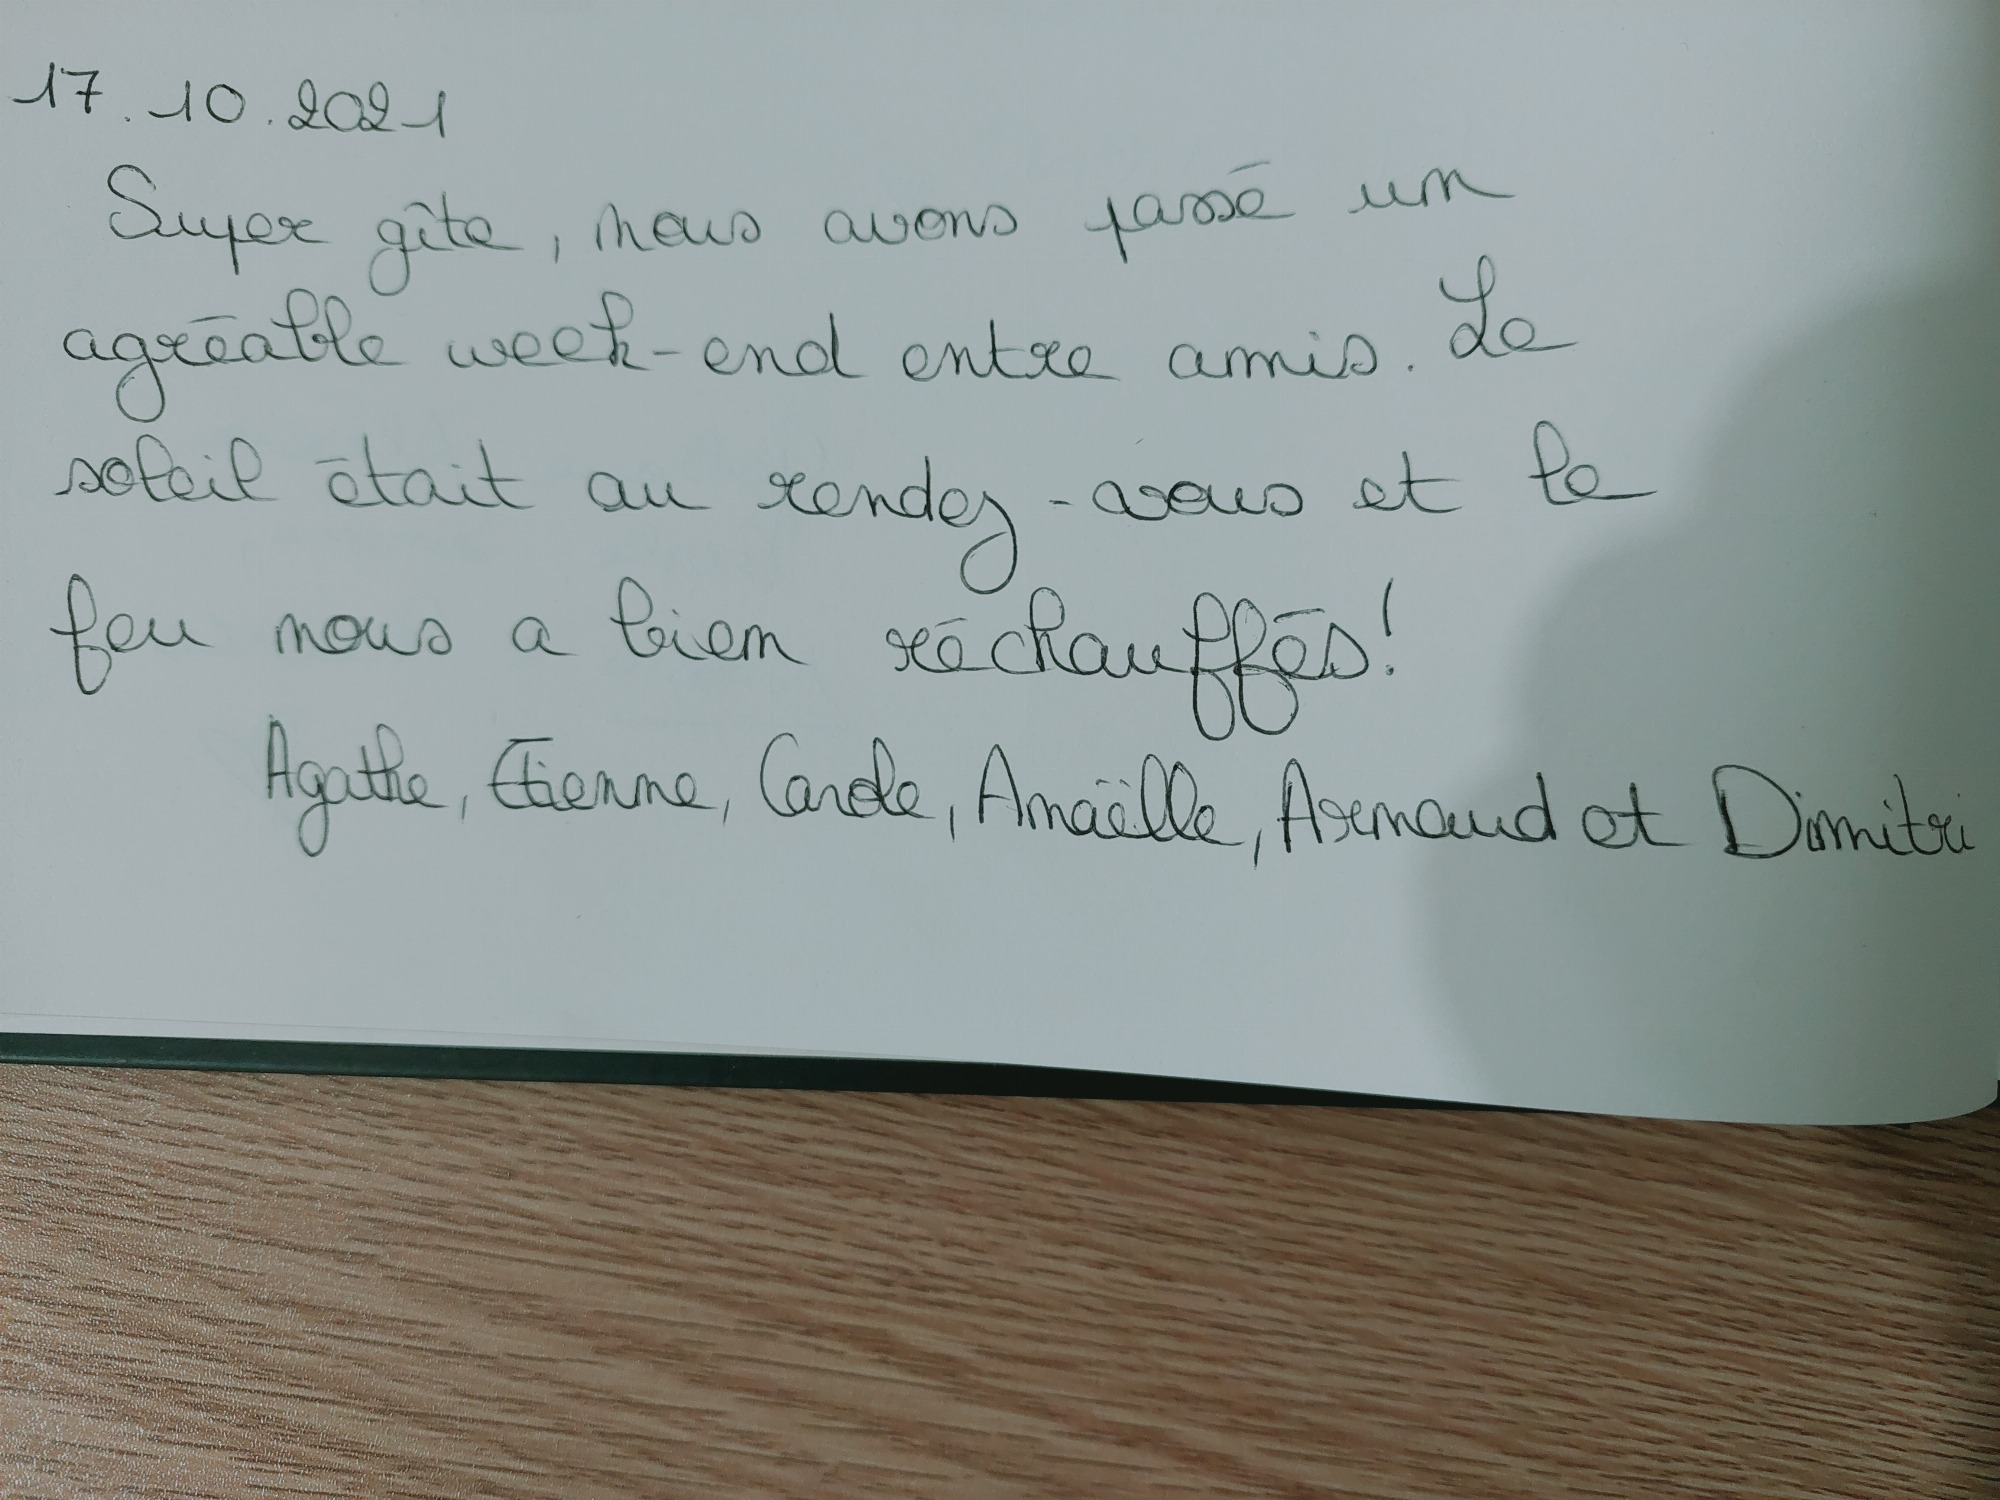 17.10.2021
Super gîte, nous avons passé un
agréable week-end entre amis. Le
soleil était au rendez-vous et le
feu nous a bien réchauffés!
Agathe, Etienne, Carole, Amaëlle, Arnaud et Dimitri